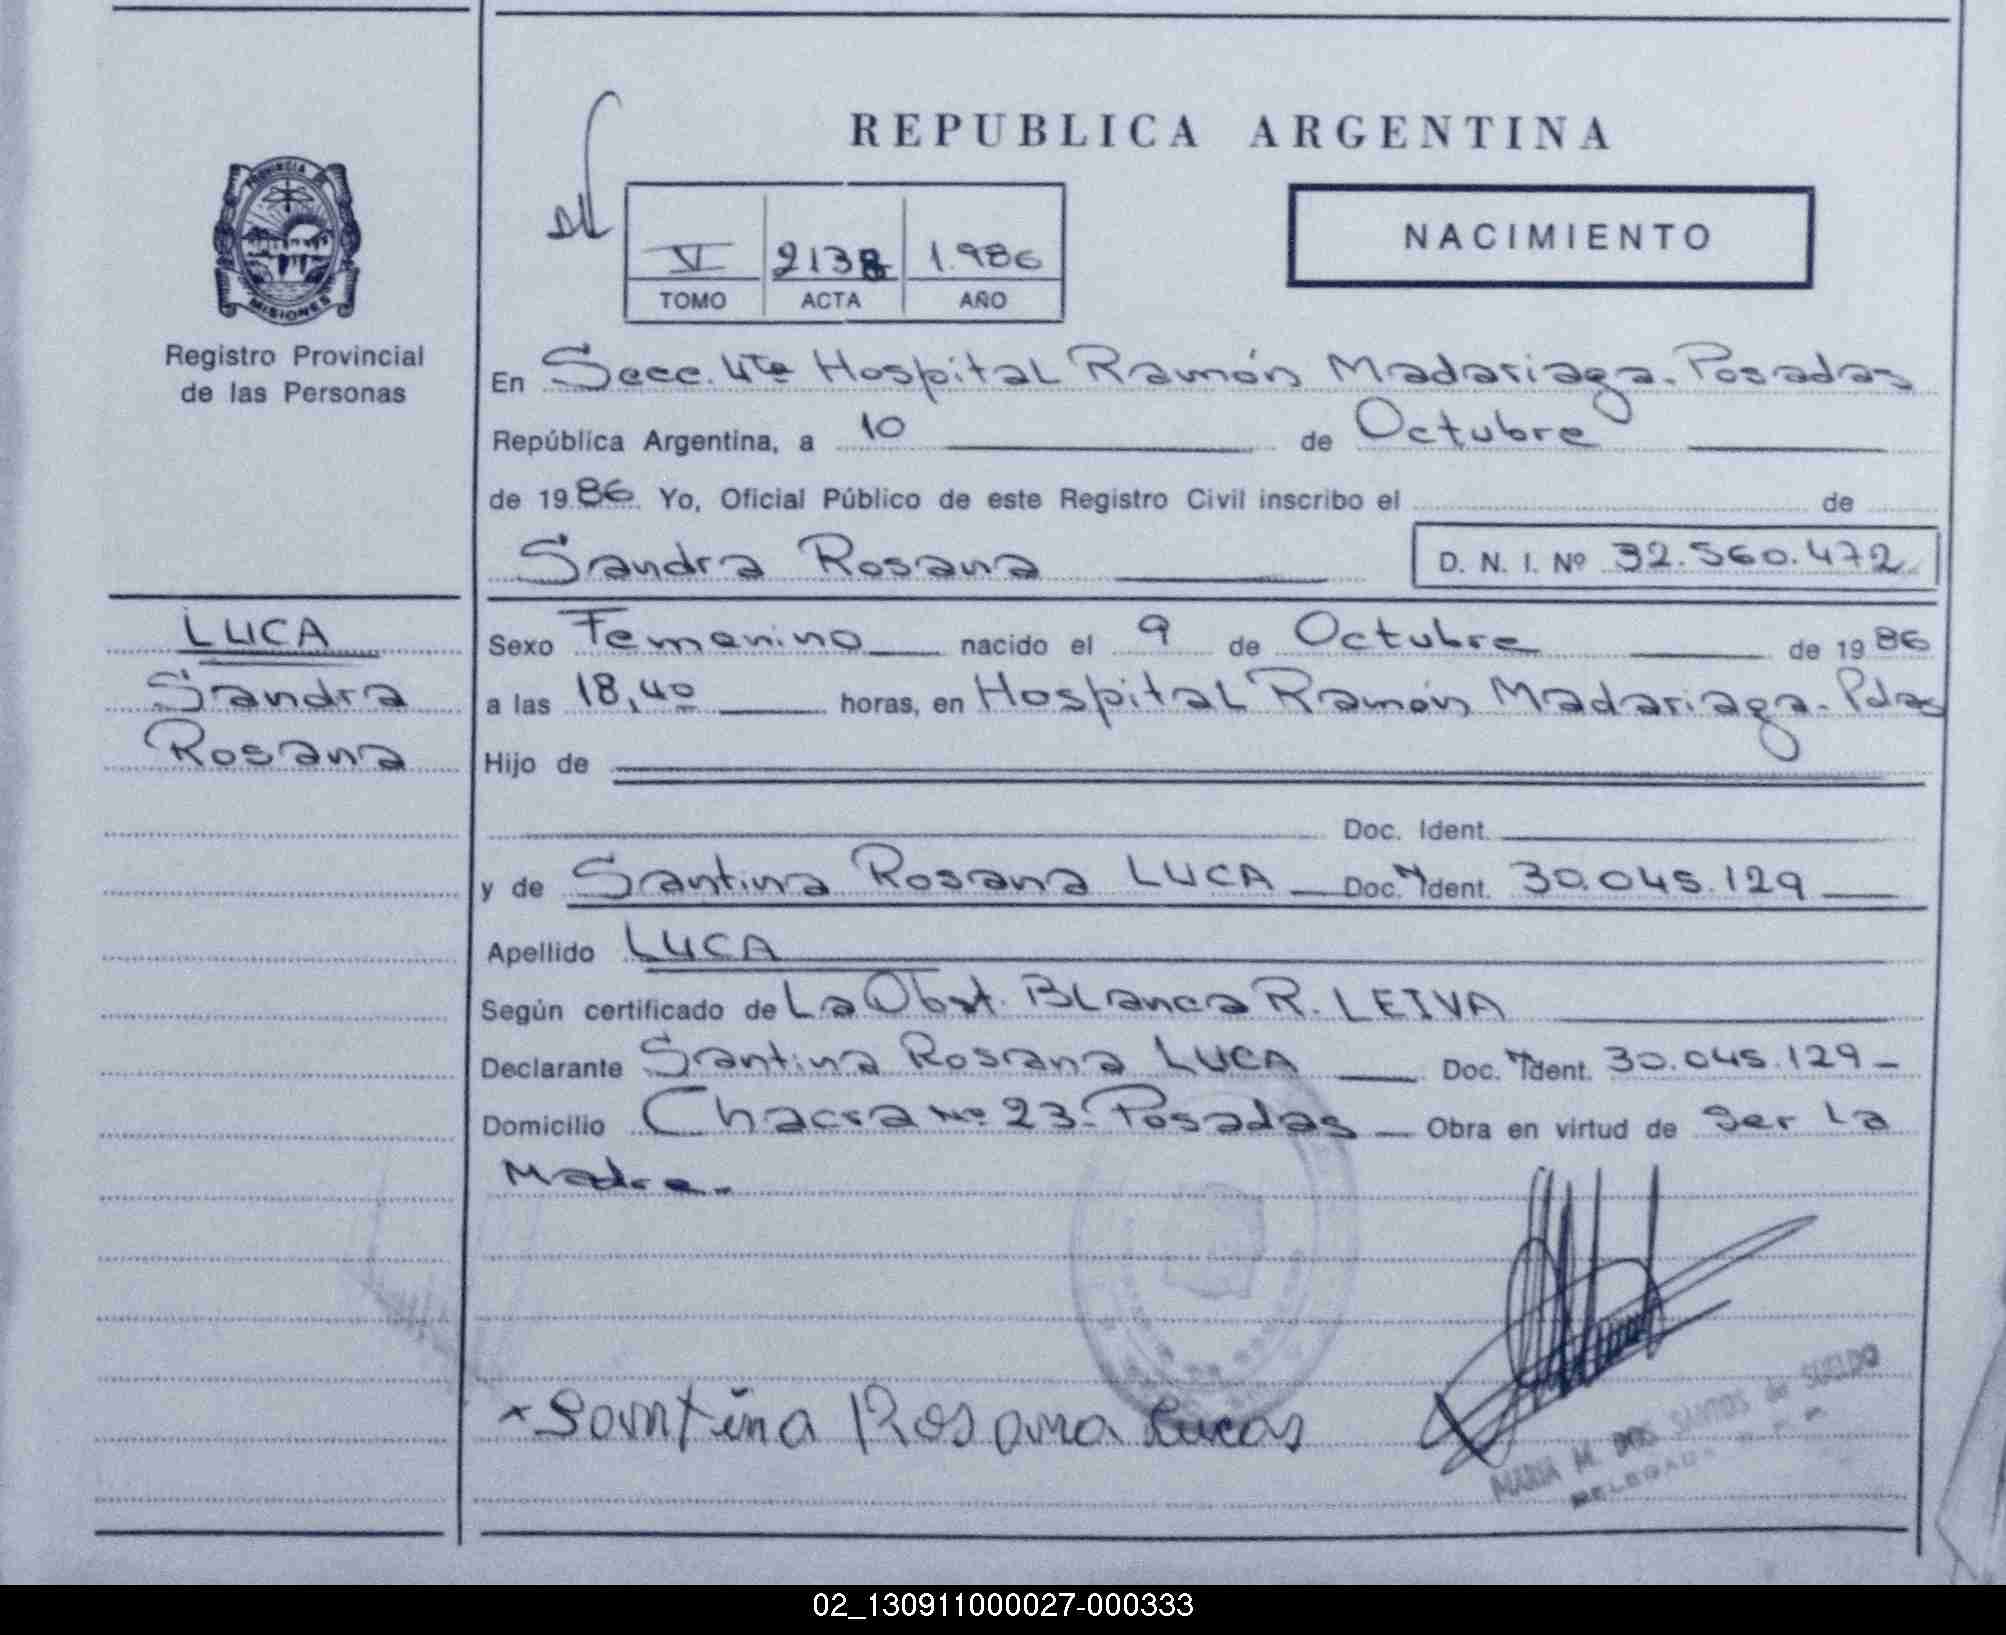 REPUBLICA ARGENTINA
PROVINCIA DE
MISIONES
Registro Provincial
de las Personas
VI 2138 1.986
TOMO ACTA AÑO
NACIMIENTO
En Secc. 4ta Hospital Ramón Madariaga. Posadas
República Argentina, a 10 de Octubre
de 1986 Yo, Oficial Público de este Registro Civil inscribo el de
Sandra Rosana D. N. I. Nº 32.560.472
LUCA
Sandra
Rosana
Sexo Femenino nacido el 9 de Octubre de 1986
a las 18,40 horas, en Hospital Ramón Madariaga. Pdas
Hijo de
Doc. Ident.
y de Santina Rosana LUCA Doc. Ident. 30.045.129
Apellido LUCA
Según certificado de La Obst. Blanca R. LEIVA
Declarante Santina Rosana LUCA Doc. Ident. 30.045.129
Domicilio Chacra Nº 23. Posadas Obra en virtud de Ser La
Madre.
Santina Rosana Lucas
MARIA M. DOS SANTOS de SUELDO
02_130911000027-000333